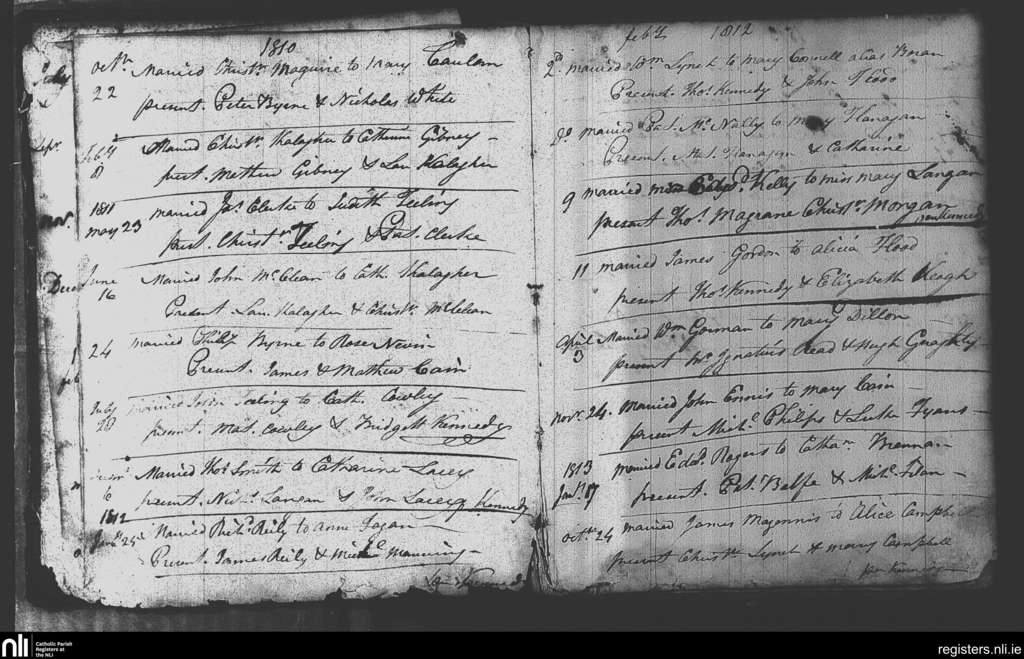 1810
Octr Married Christr Maguire to Mary
22 present. Peter Byrne & Nicholas White
Feby Married Christr Kalagher to Catherine Gibney
8 prest. Mathew Gibney & Lau Kalagher
1811 married Jas Clerke to Judith Feeling
May 23 prest. Christr Feeling & Pat. Clerke
June Married John McClean to Cath. Kalagher
16 Present Lau. Kalagher & Christr McClean
24 married Philip Byrne to Rose Nevin
Present. James & Mathew Cain
July married John to Cath. Cowley
28 present. Mat. Cowley & Bridgett Kennedy
Married Thos Smith to Catharine Lacey
6 present. Nichs Langan & John Lacey Kennedy
1812 Married Richd Reily to Anne Fagan
Jany 25th Present. James Reily & Michl Manning
Feby 1812
2d married Wm Lynch to Mary Connell alias Boran
Present. Thos Kennedy & John Flood
Do married Pat. McNally to Mary Flanagan
Present. Flanagan & Catharine
9 married Edwd Kelly to miss Mary Langan
present Thos Magrane Christr Morgan
11 married James Gordon to Alicia Flood
present Thos Kennedy & Elizabeth Keogh
April Married Wm Gorman to Mary Dillon
3 present Mr Ignatius Read & Hugh Geraghty
Novr 24. Married John Ennis to Mary Cain
present Michl Philps & Luke Fyans
1813 married Edwd Rogers to Cathn Brennan
Jany 17 present. Pat. Belfe & Michl
Octr 24 married James Magennis to Alice Campbell
present Christr Lynch & Mary Campbell
per Kennedy
nli
Catholic Parish
Registers at
the NLI
registers.nli.ie